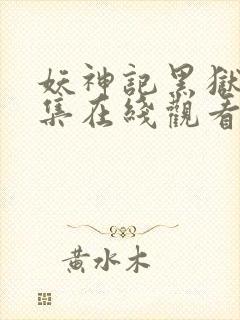 妖神記黑獄
集在綫觀看
黃水木